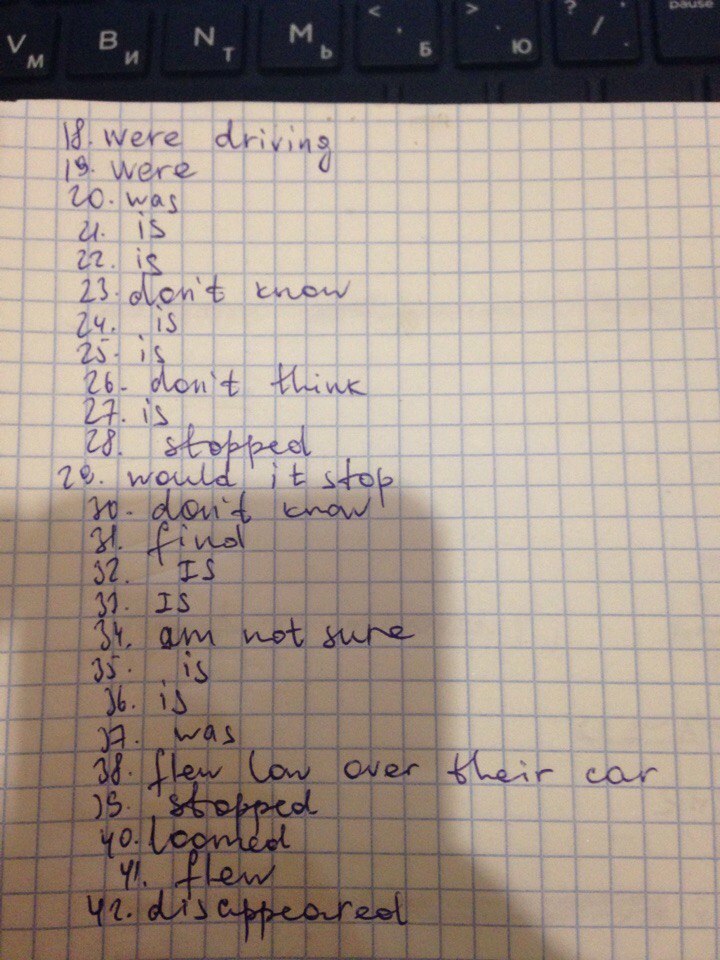 pause
V М
B И
N Т
M Ь
< , Б
> . Ю
? / .
18. were driving
19. were
20. was
21. is
22. is
23. don't know
24. is
25. is
26. don't think
27. is
28. stopped
29. would it stop
30. don't know
31. find
32. IS
33. IS
34. am not sure
35. is
36. is
37. was
38. flew low over their car
39. stopped
40. loomed
41. flew
42. disappeared